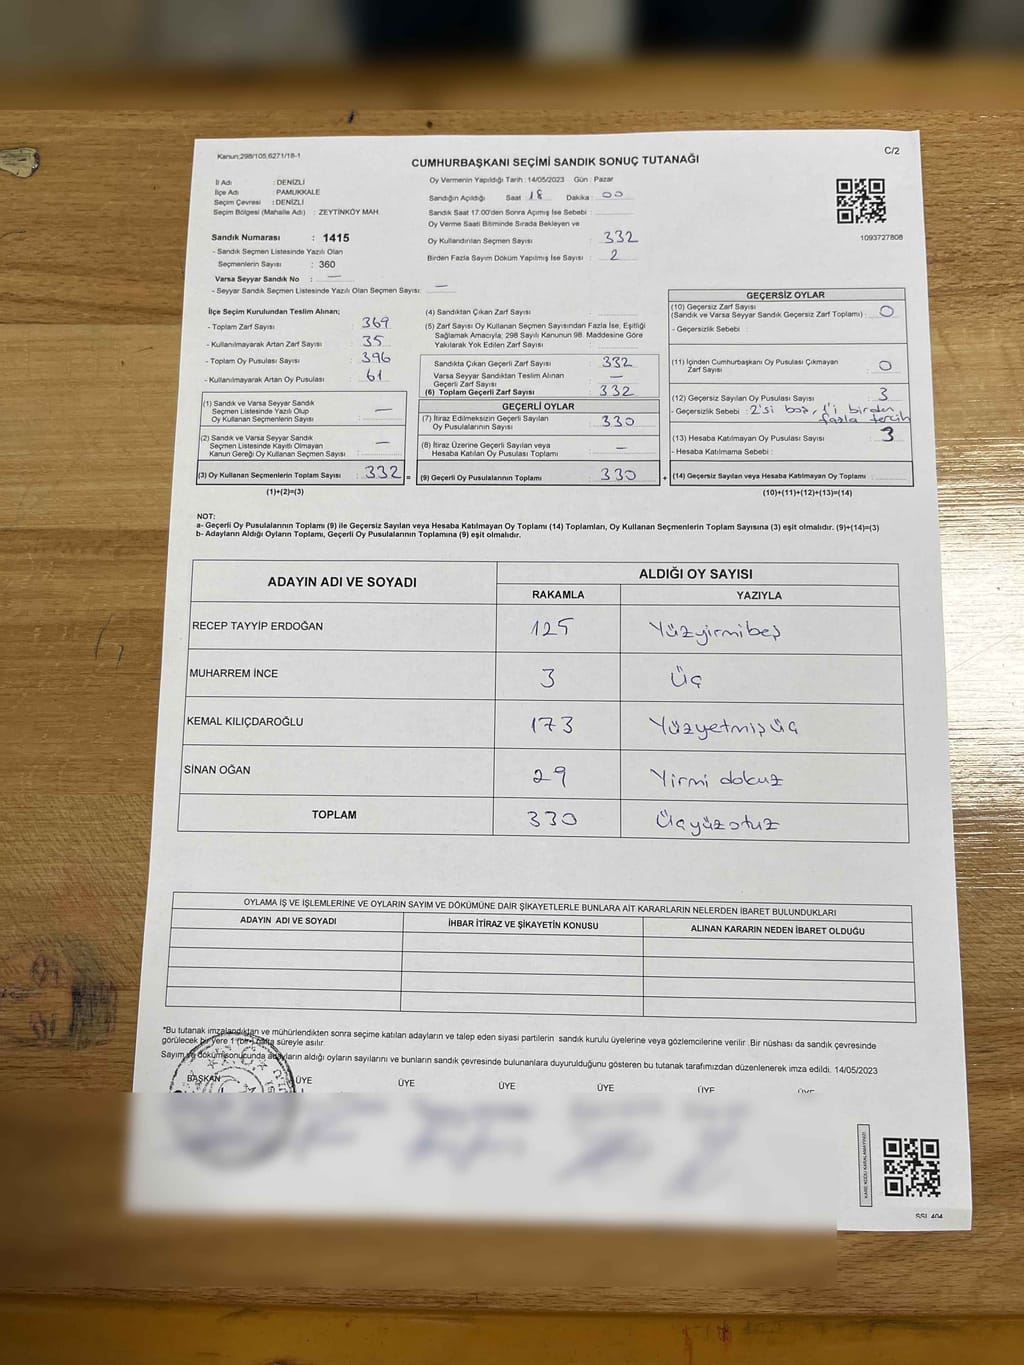 Kanun;298/105;6271/18-1
C/2
CUMHURBAŞKANI SEÇİMİ SANDIK SONUÇ TUTANAĞI
İl Adı : DENİZLİ
İlçe Adı : PAMUKKALE
Seçim Çevresi : DENİZLİ
Seçim Bölgesi (Mahalle Adı) : ZEYTİNKÖY MAH.
Sandık Numarası : 1415
- Sandık Seçmen Listesinde Yazılı Olan
Seçmenlerin Sayısı : 360
Varsa Seyyar Sandık No : —
- Seyyar Sandık Seçmen Listesinde Yazılı Olan Seçmen Sayısı: —
Oy Vermenin Yapıldığı Tarih :14/05/2023 Gün : Pazar
Sandığın Açıldığı Saat 18 Dakika : 00
Sandık Saat 17.00'den Sonra Açımış İse Sebebi :
Oy Verme Saati Bitiminde Sırada Bekleyen ve
Oy Kullandırılan Seçmen Sayısı : 332
Birden Fazla Sayım Döküm Yapılmış İse Sayısı : 2
1093727808
İlçe Seçim Kurulundan Teslim Alınan;
- Toplam Zarf Sayısı : 369
- Kullanılmayarak Artan Zarf Sayısı : 35
- Toplam Oy Pusulası Sayısı : 396
- Kullanılmayarak Artan Oy Pusulası : 61
(1) Sandık ve Varsa Seyyar Sandık
Seçmen Listesinde Yazılı Olup
Oy Kullanan Seçmenlerin Sayısı : —
(2) Sandık ve Varsa Seyyar Sandık
Seçmen Listesinde Kayıtlı Olmayan
Kanun Gereği Oy Kullanan Seçmen Sayısı : —
(3) Oy Kullanan Seçmenlerin Toplam Sayısı : 332 =
(1)+(2)=(3)
(4) Sandıktan Çıkan Zarf Sayısı :
(5) Zarf Sayısı Oy Kullanan Seçmen Sayısından Fazla İse, Eşitliği
Sağlamak Amacıyla; 298 Sayılı Kanunun 98. Maddesine Göre
Yakılarak Yok Edilen Zarf Sayısı :
Sandıkta Çıkan Geçerli Zarf Sayısı : 332
Varsa Seyyar Sandıktan Teslim Alınan
Geçerli Zarf Sayısı : —
(6) Toplam Geçerli Zarf Sayısı : 332
GEÇERLİ OYLAR
(7) İtiraz Edilmeksizin Geçerli Sayılan
Oy Pusulalarının Sayısı : 330
(8) İtiraz Üzerine Geçerli Sayılan veya
Hesaba Katılan Oy Pusulası Toplamı : —
(9) Geçerli Oy Pusulalarının Toplamı : 330 +
GEÇERSİZ OYLAR
(10) Geçersiz Zarf Sayısı
(Sandık ve Varsa Seyyar Sandık Geçersiz Zarf Toplamı) : 0
- Geçersizlik Sebebi :
(11) İçinden Cumhurbaşkanı Oy Pusulası Çıkmayan
Zarf Sayısı : 0
(12) Geçersiz Sayılan Oy Pusulası Sayısı : 3
- Geçersizlik Sebebi : 2'si boş, 1'i birden
fazla tercih
(13) Hesaba Katılmayan Oy Pusulası Sayısı : 3
- Hesaba Katılmama Sebebi :
(14) Geçersiz Sayılan veya Hesaba Katılmayan Oy Toplamı :
(10)+(11)+(12)+(13)=(14)
NOT:
a- Geçerli Oy Pusulalarının Toplamı (9) ile Geçersiz Sayılan veya Hesaba Katılmayan Oy Toplamı (14) Toplamları, Oy Kullanan Seçmenlerin Toplam Sayısına (3) eşit olmalıdır. (9)+(14)=(3)
b- Adayların Aldığı Oyların Toplamı, Geçerli Oy Pusulalarının Toplamına (9) eşit olmalıdır.
ADAYIN ADI VE SOYADI ALDIĞI OY SAYISI
RAKAMLA YAZIYLA
RECEP TAYYİP ERDOĞAN 125 Yüzyirmibeş
MUHARREM İNCE 3 Üç
KEMAL KILIÇDAROĞLU 173 Yüzyetmişüç
SİNAN OĞAN 29 Yirmi dokuz
TOPLAM 330 Üçyüzotuz
OYLAMA İŞ VE İŞLEMLERİNE VE OYLARIN SAYIM VE DÖKÜMÜNE DAİR ŞİKAYETLERLE BUNLARA AİT KARARLARIN NELERDEN İBARET BULUNDUKLARI
ADAYIN ADI VE SOYADI İHBAR İTİRAZ VE ŞİKAYETİN KONUSU ALINAN KARARIN NEDEN İBARET OLDUĞU
*Bu tutanak imzalandıktan ve mühürlendikten sonra seçime katılan adayların ve talep eden siyasi partilerin sandık kurulu üyelerine veya gözlemcilerine verilir .Bir nüshası da sandık çevresinde
görülecek bir yere 1 (bir) hafta süreyle asılır.
Sayım ve döküm sonucunda adayların aldığı oyların sayılarını ve bunların sandık çevresinde bulunanlara duyurulduğunu gösteren bu tutanak tarafımızdan düzenlenerek imza edildi. 14/05/2023
BAŞKAN ÜYE ÜYE ÜYE ÜYE ÜYE ÜYE